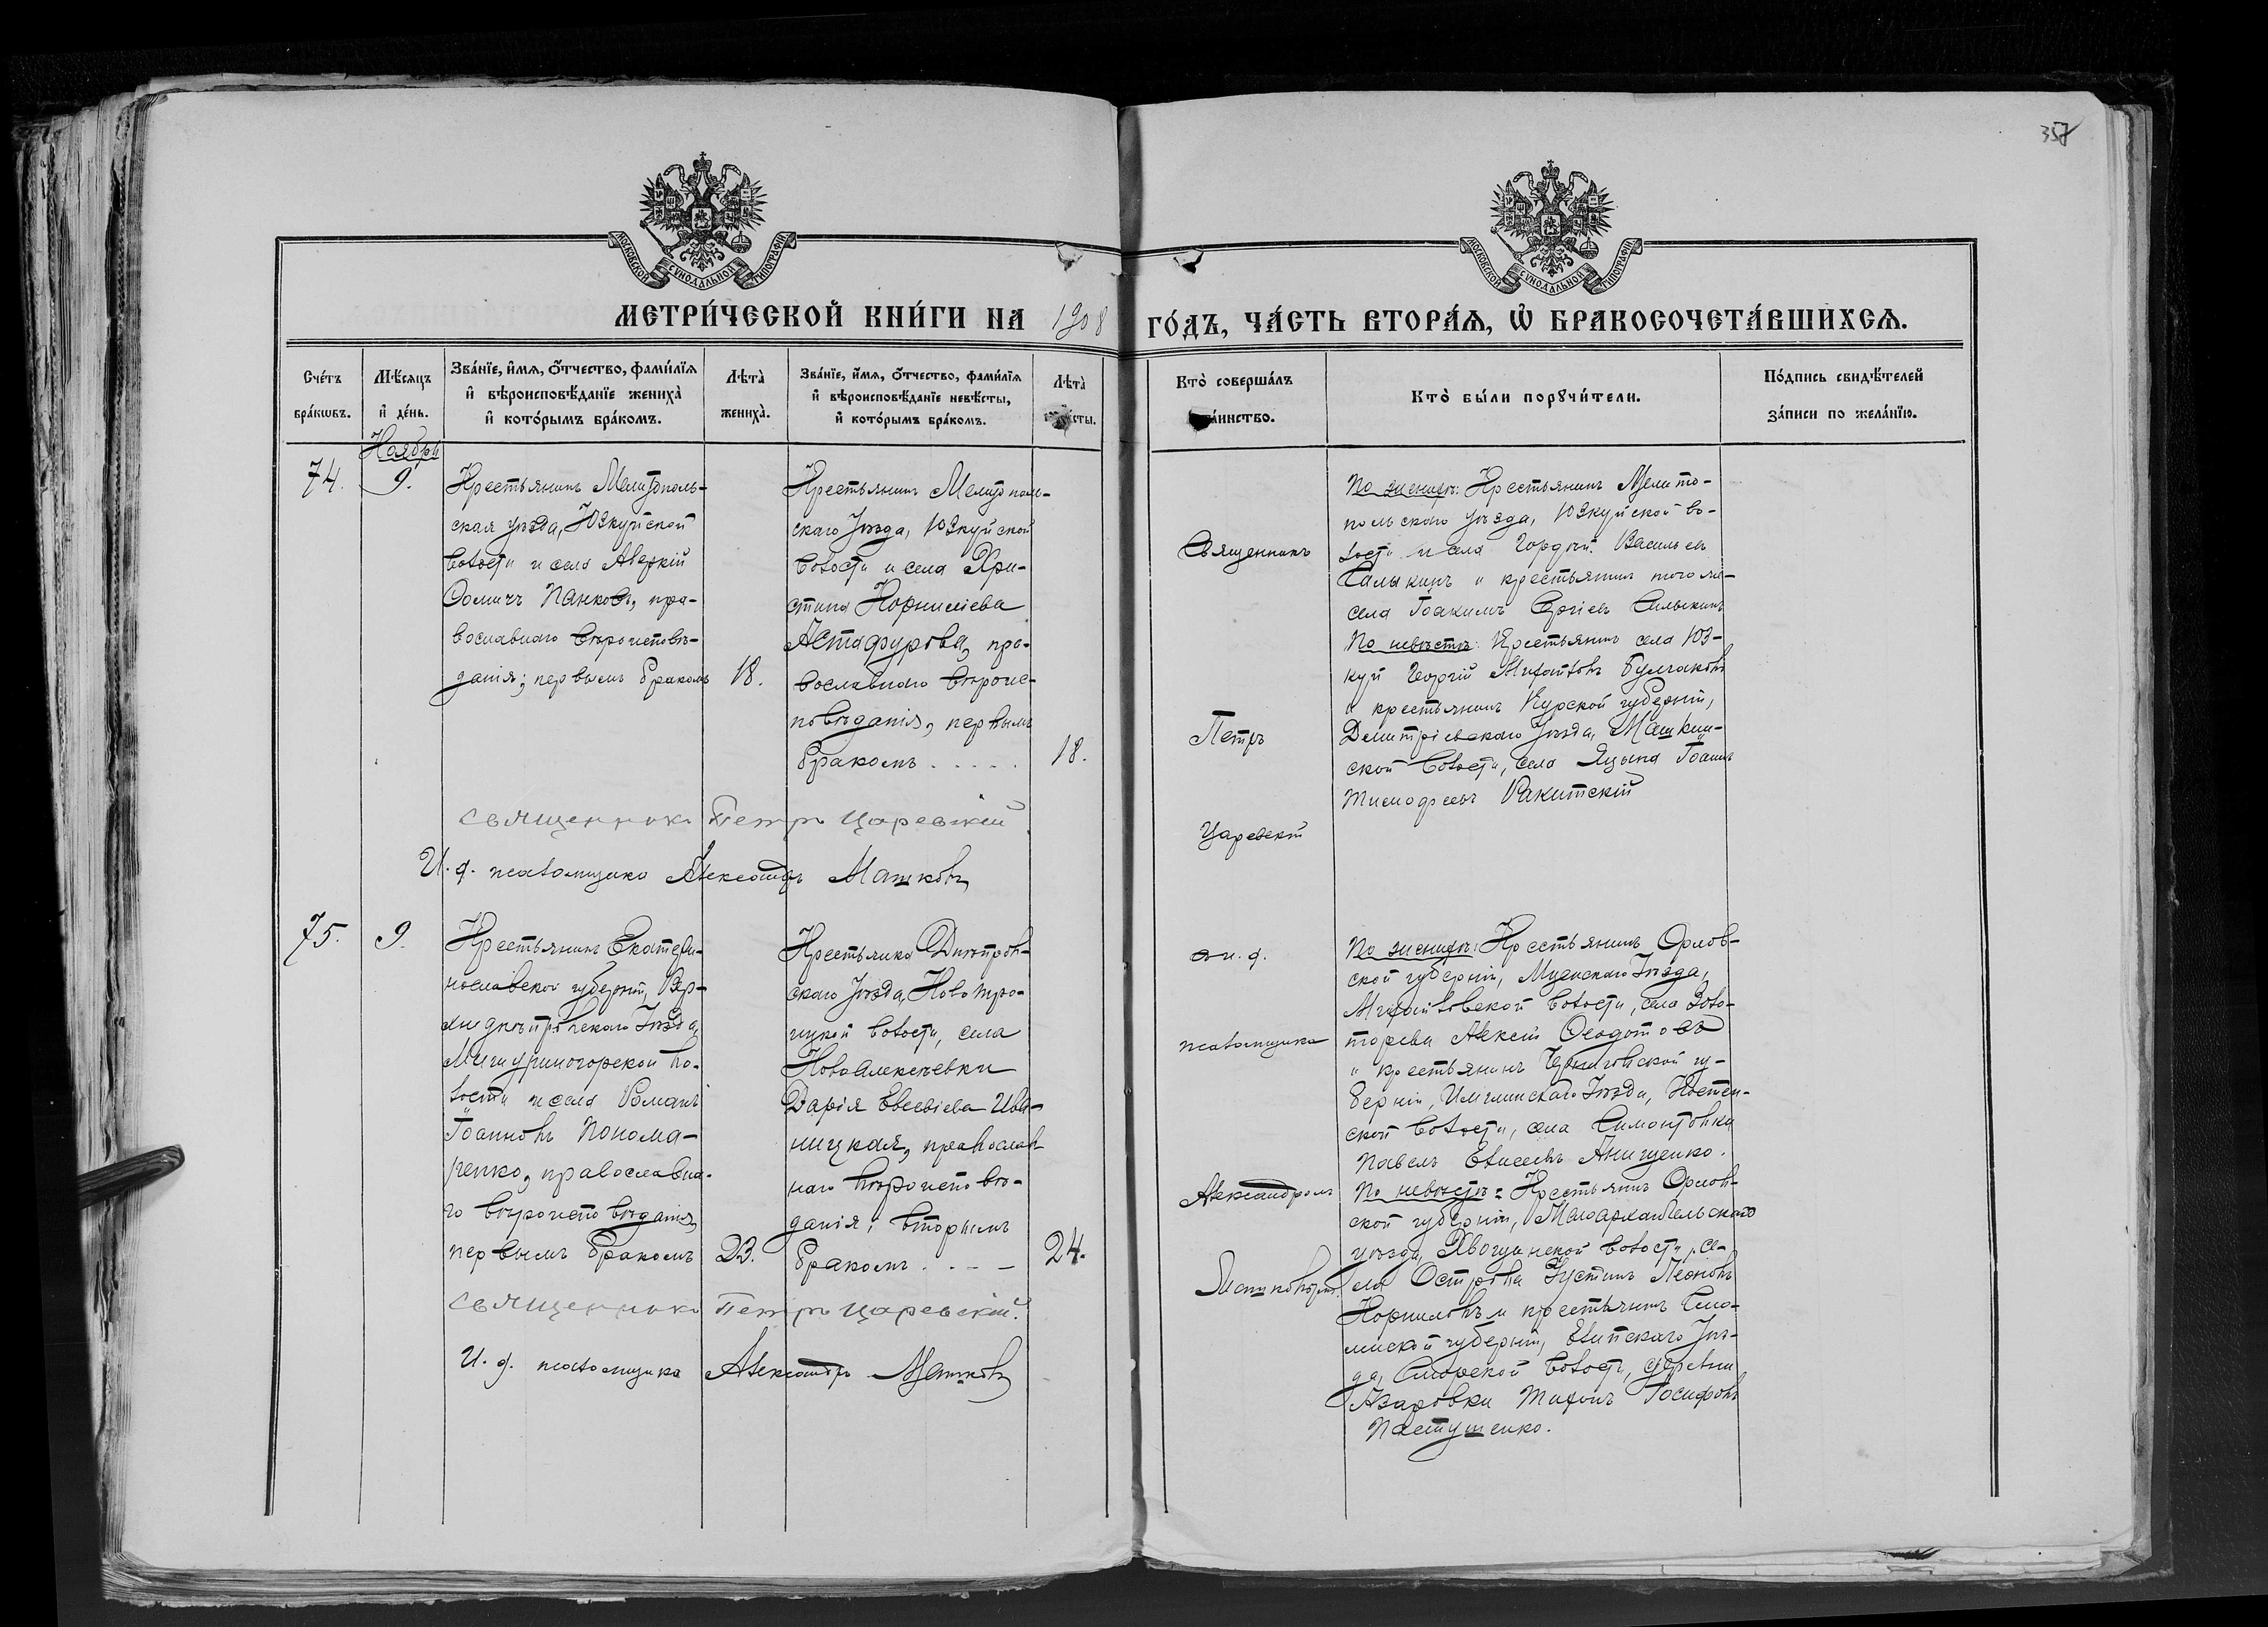 357
МОСКОВСКОЙ СѴНОДАЛЬНОЙ ТИПОГРАФІИ
МОСКОВСКОЙ СѴНОДАЛЬНОЙ ТИПОГРАФІИ
МЕТРИ́ЧЕСКОЙ КНИ́ГИ НА 1908 ГО́ДЪ, ЧА́СТЬ ВТОРА́Я, Ѡ БРАКОСОЧЕТА́ВШИХСЯ.
Сче́тъ
бра́кѡвъ.
Мѣ́сяцъ
и҆ де́нь.
Зва́нїе, и҆́мя, ѻ҆́тчество, фами́лїя
и҆ вѣроисповѣ́данїе жениха̀
и҆ кото́рымъ бра́комъ.
Лѣта̀
жениха̀.
Зва́нїе, и҆́мя, ѻ҆́тчество, фами́лїя
и҆ вѣроисповѣ́данїе невѣ́сты,
и҆ кото́рымъ бра́комъ.
Лѣта̀
Кто̀ соверша́лъ
та́инство.
Кто̀ бы́ли порꙋчи́тели.
По́дпись свидѣ́телей
за́писи по жела́нїю.
Ноября
74.
9.
Крестьянинъ Мелитополь-
скаго уѣзда, Юзкуйской
волости и села Аверкій
Ѳомичъ Панковъ, пра-
вославнаго вѣроисповѣ-
данія; первымъ бракомъ
18.
Мелитополь-
скаго уѣзда, Юзкуйской
волости и села Хри-
стина Корниліева
Астафурова, пра-
вославнаго вѣроис-
повѣданія, первымъ
бракомъ . . . . .
18.
Священникъ
Петръ
Царевскій
По женихѣ: Крестьянинъ Мелито-
польскаго уѣзда, Юзкуйской во-
лости и села Гордій Васильевъ
Салыкинъ и крестьянинъ того же
села Іоакимъ Сергіевъ Салыкинъ
По невѣстѣ: Крестьянинъ села Юз-
куй Георгій Булгаковъ
и крестьянинъ Курской губерніи,
Димитріевскаго уѣзда, Машкин-
ской волости, села Яцына Іоаннъ
Тимофеевъ Ракитскій
Священникъ Петръ Царевскій
И. д. псаломщика Александръ Машковъ
75.
9.
Крестьянинъ Екатери-
нославской губерніи, Вер-
хнеднѣпровскаго уѣзда,
Мишуриногорской во-
лости и села Романъ
Іоанновъ Понома-
ренко, православна-
го вѣроисповѣданія,
первымъ бракомъ
23.
Крестьянка Днѣпров-
скаго уѣзда, Новотро-
ицкой волости, села
Новоалексѣевки
Дарія Евсевіева Ива-
ницкая, православ-
наго вѣроисповѣ-
данія; вторымъ
бракомъ . . - -
24.
и. д.
псаломщика
Александромъ
Машковымъ.
По женихѣ: Крестьянинъ Орлов-
ской губерніи, Мценскаго уѣзда,
волости, села Золо-
торева Алексій Ѳеодотовъ
и крестьянинъ Черниговской гу-
берніи, Имглинскаго уѣзда, Костен-
ской волости, села Симонтовки
Павелъ Елисеевъ Анищенко.
По невѣстѣ: Крестьянинъ Орлов-
ской губерніи, Малоархангельскаго
уѣзда, волости, се-
ла Острова Іустинъ Леоновъ
Корниловъ и крестьянинъ Смо-
ленской губерніи, Ельнскаго уѣз-
да, волости, деревни
Азаровки Тихонъ Іосифовъ
Пастушенко.
Священникъ Петръ Царевскій.
И. д. псаломщика Александръ Машковъ